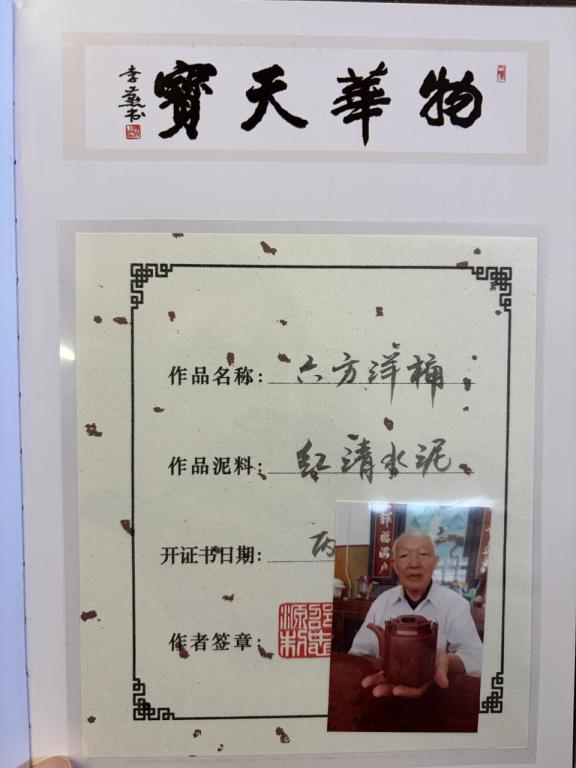 物華天寶
李燕书
作品名称：六方洋桶
作品泥料：红清水泥
开证书日期：丙
作者签章：
源制